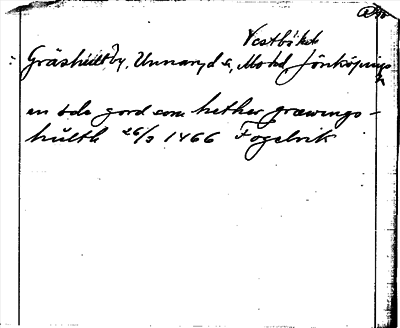 Vestbo hd
Gräshult by, Unnaryd s, Mo hd, Jönköpings
en öde gord som hether græwings-
hulth 26/3 1466 Fogelvik